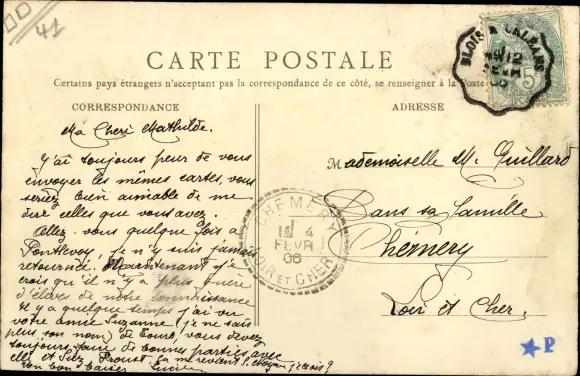 41
CARTE POSTALE
Certains pays étrangers n'acceptent pas la correspondance de ce côté, se renseigner à la Poste
CORRESPONDANCE
Ma Cheri Mathilde.
J'ai toujours peur de vous
envoyer les mêmes cartes, vous
seriez bien aimable de me
dire celles que vous avez.
Allez-vous quelque fois à
Pontlevoy, je n'y suis jamais
retournée. Maintenant je
crois qu'il n'y a plus guère
d'élèves de notre connaissance
il y a quelque temps j'ai vu
votre amie Suzanne (je ne sais
plus son nom) de Tours, vous devez
toujours faire de bonnes parties avec
elle et Proust
me revient
bon baiser
ADRESSE
Mademoiselle M. Guillard
Dans sa famille
Chémery
Loir et Cher.
BLOIS A ORLEANS
CHEMERY
4
FEVR
06
LOIR ET CHER
5
P